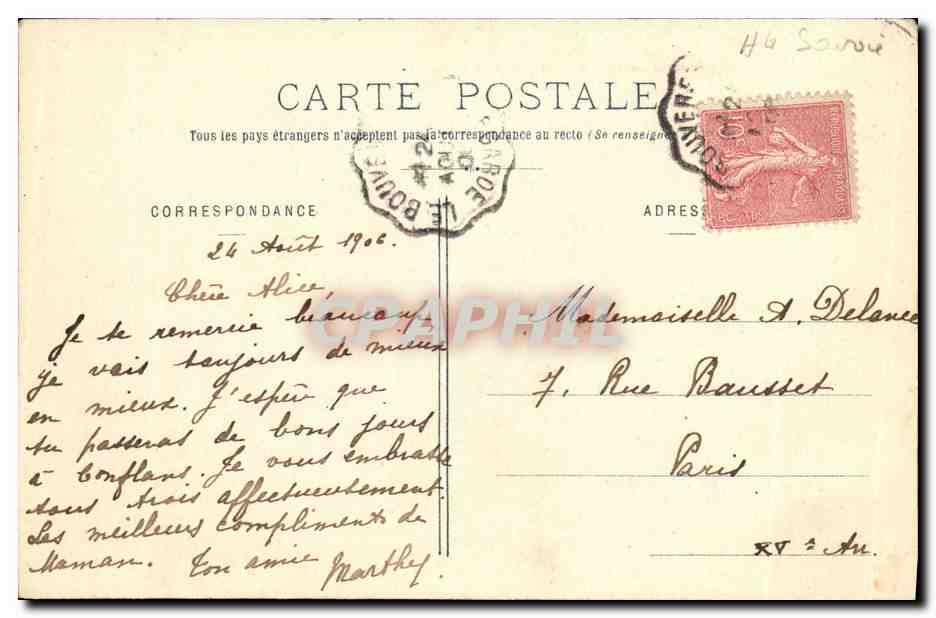 Hte Savoie
CARTE POSTALE
Tous les pays étrangers n'acceptent pas la correspondance au recto (Se renseigne
CORRESPONDANCE
ADRES
24 Août 1906.
Chère Alice,
Je te remercie beaucoup,
je vais toujours de mieux
en mieux. J'espère que
tu passeras de bons jours
à Conflans. Je vous embrasse
tous trois affectueusement.
Les meilleurs compliments de
Maman. Ton amie Marthe.
Mademoiselle A. Delance
7, Rue Bausset
Paris
XVe Arr.
LE BOUVE
BOUVER
CPAPHIL